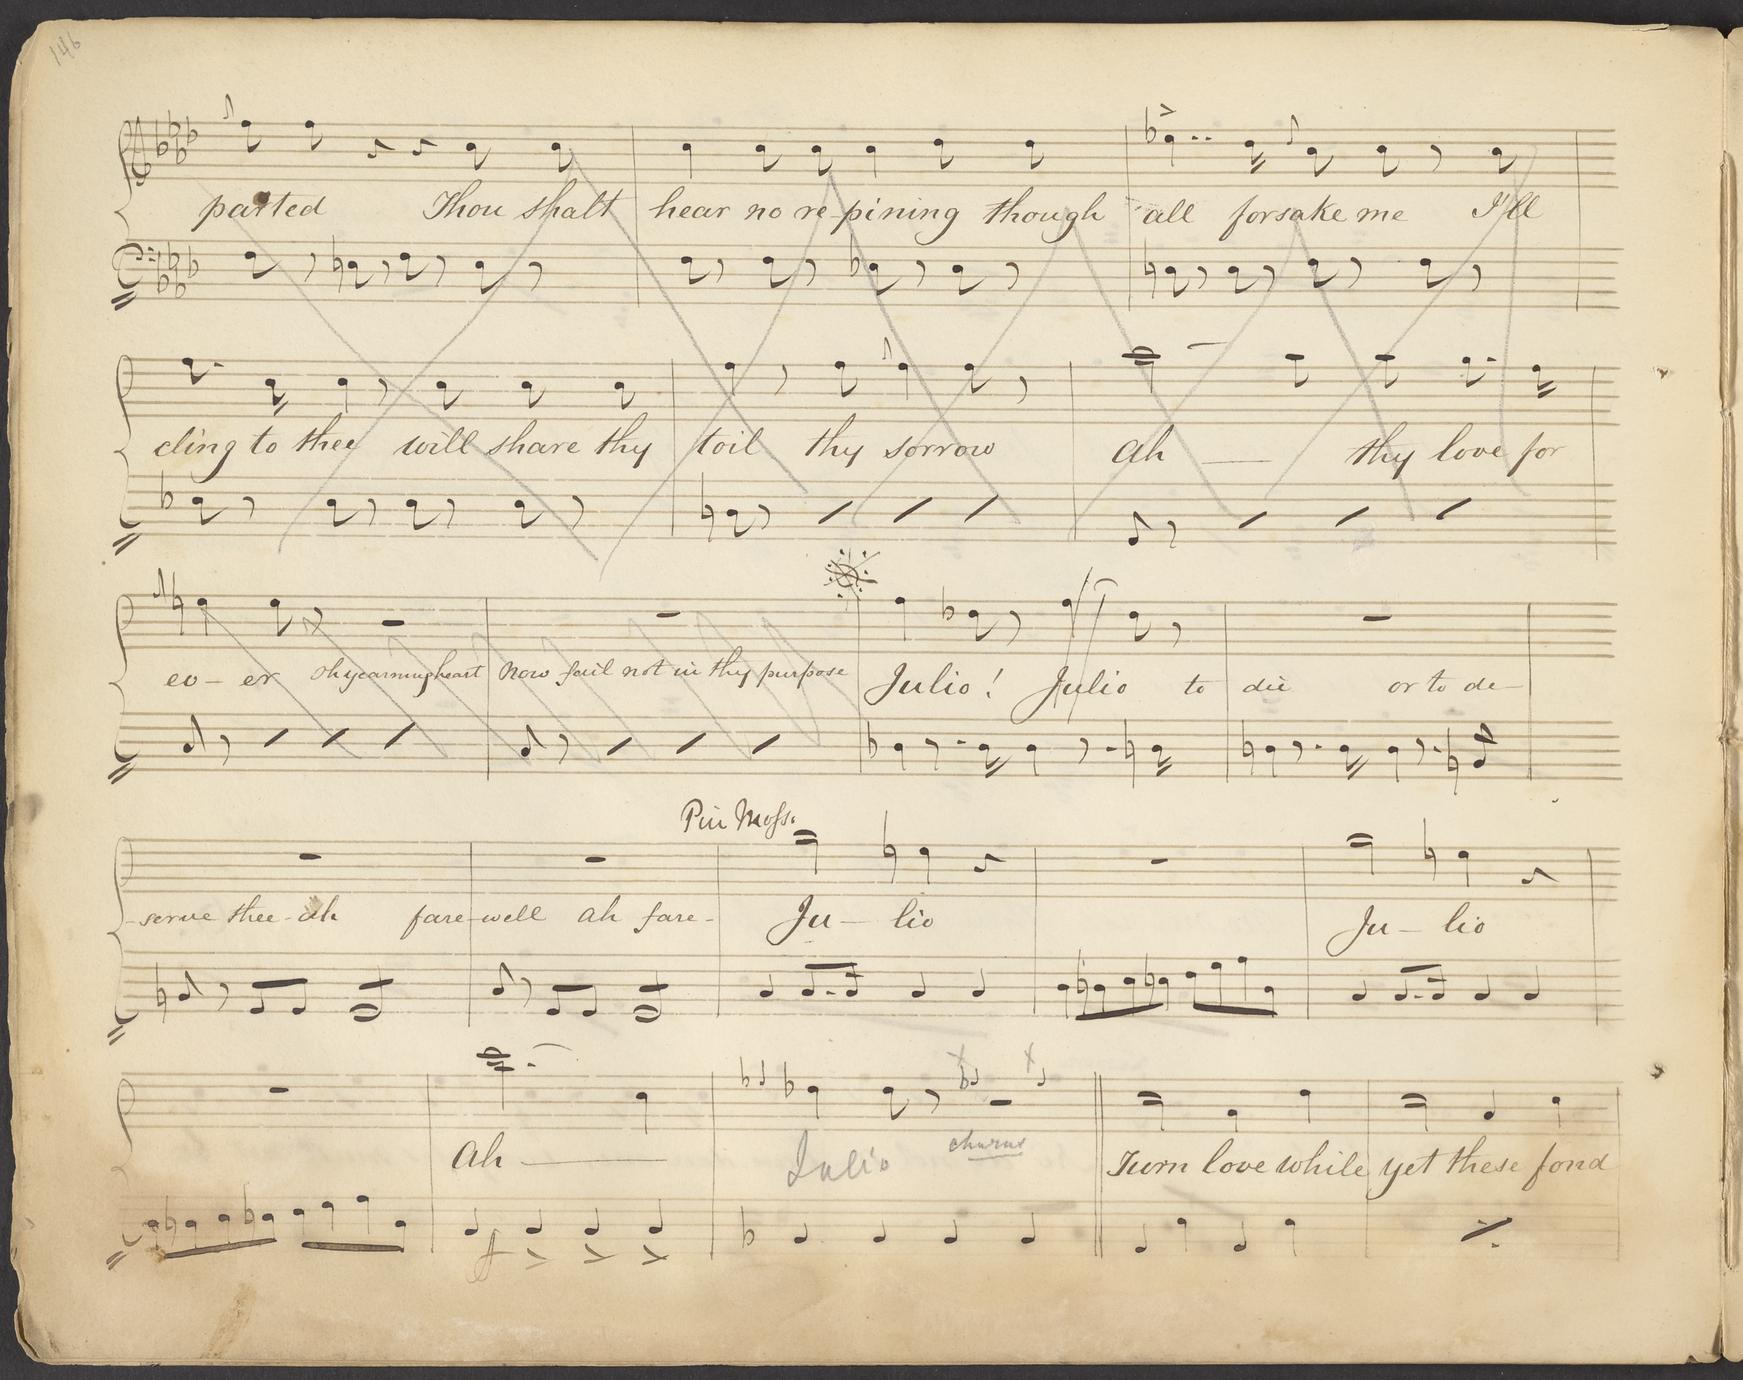 146
parted Thou shalt hear no re-pining though all forsake me I'll
cling to thee will share thy toil thy sorrow Ah — thy love for
ev - er oh yearning heart now fail not in thy purpose Julio! Julio to die or to de-
Piu Moss.
-serve thee - ah fare-well ah fare- Ju - lio Ju - lio
Ah — Julio chorus Turn love while yet these fond